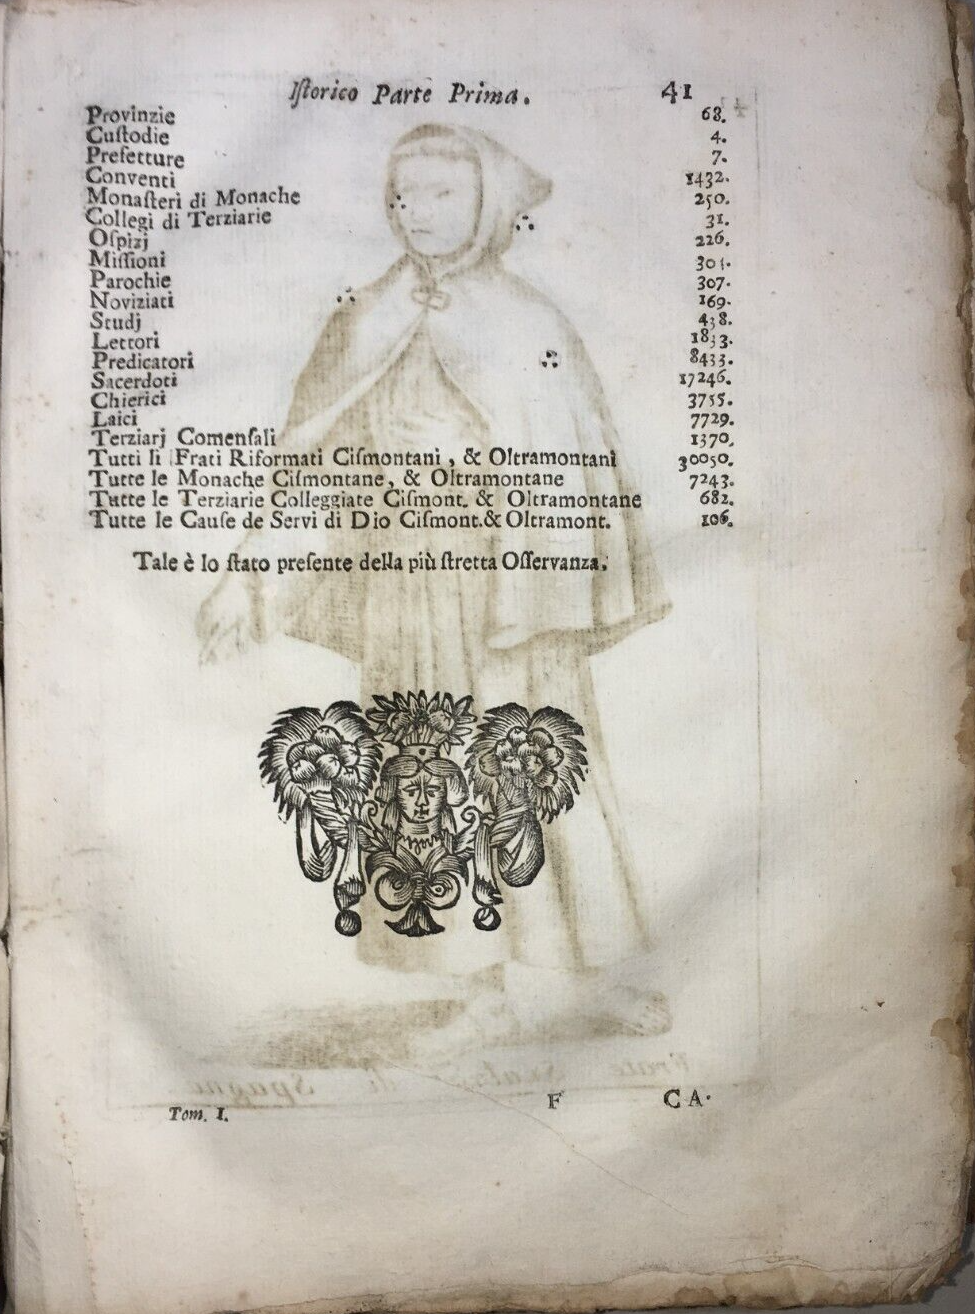 Iſtorico Parte Prima. 41
Provinzie 68.
Cuſtodie 4.
Prefetture 7.
Conventi 1432.
Monaſteri di Monache 250.
Collegi di Terziarie 31.
Oſpizj 226.
Miſſioni
Parochie 307.
Noviziati 169.
Studj 438.
Lettori 1833.
Predicatori 8433.
Sacerdoti 17246.
Chierici 3755.
Laici 7729.
Terziarj Comenſali 1370.
Tutti li Frati Riformati Ciſmontani , & Oltramontani 30050.
Tutte le Monache Ciſmontane, & Oltramontane 7243.
Tutte le Terziarie Colleggiate Ciſmont. & Oltramontane 682.
Tutte le Cauſe de Servi di Dio Ciſmont.& Oltramont. 106.
Tale è lo ſtato preſente della più ſtretta Oſſervanza.
Frate Scalzo di Spagna
Tom. I. F CA.